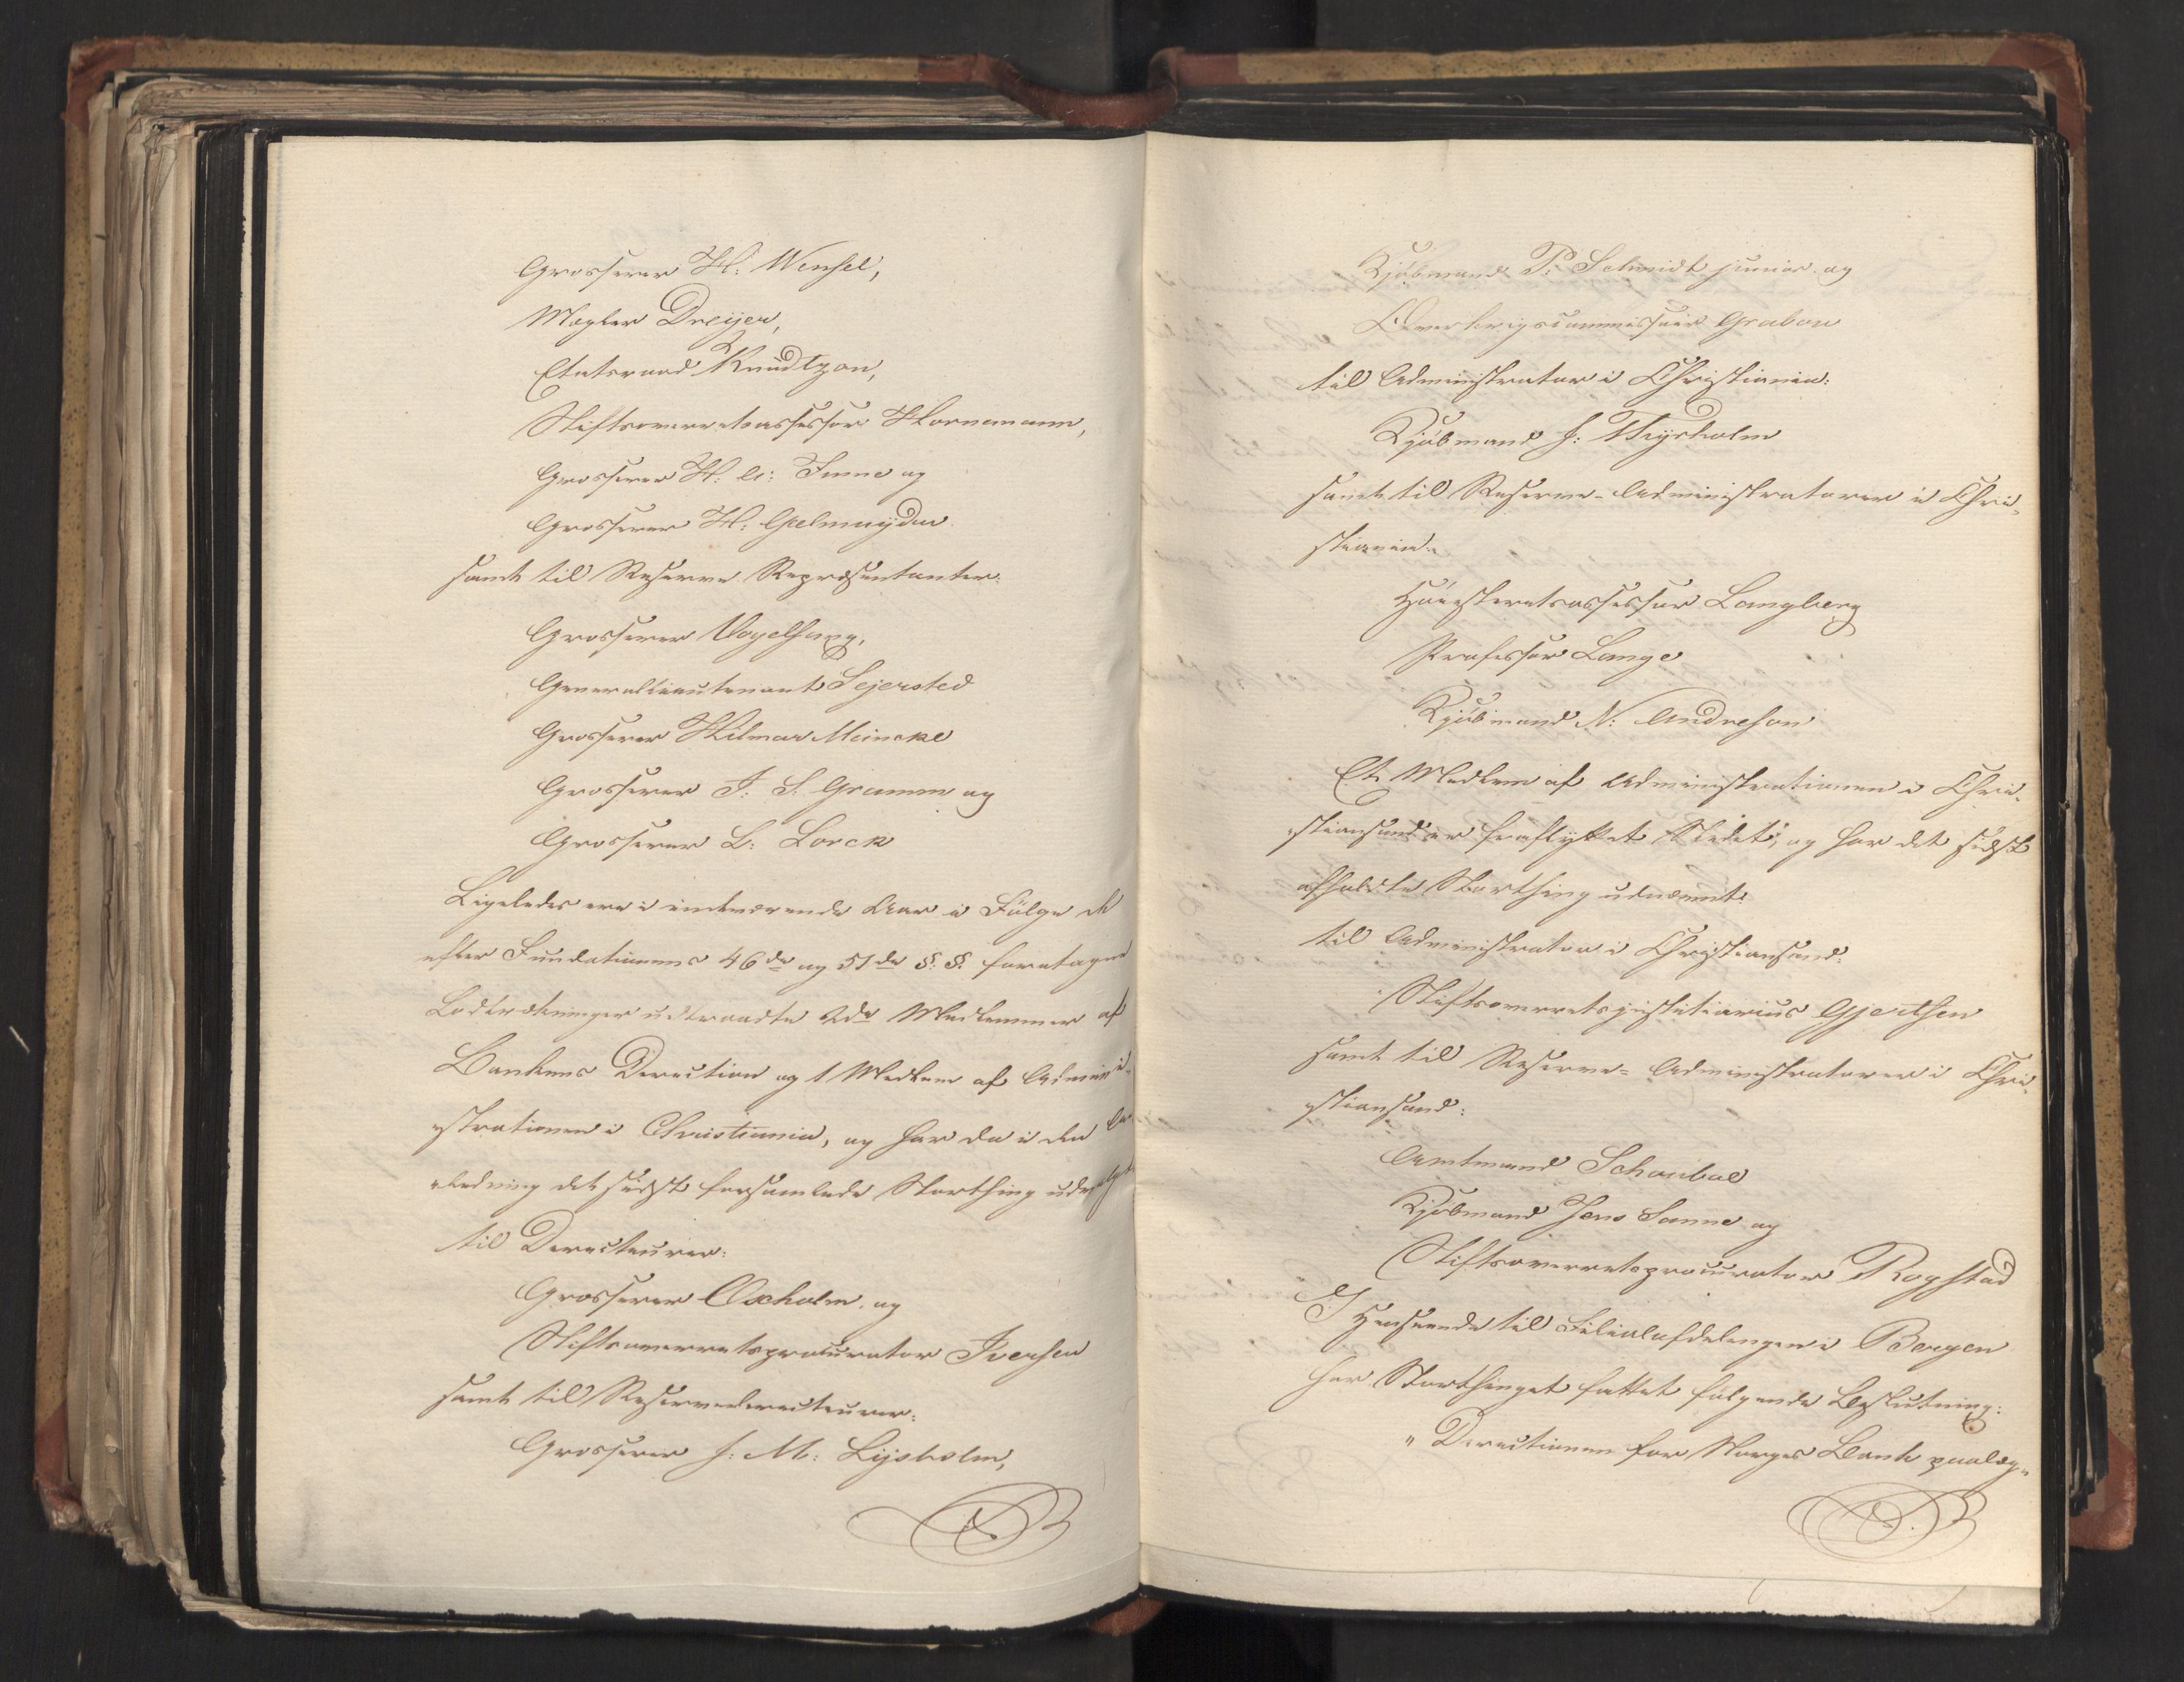 Grosserer H: Wensel,
Mægler Dreijer,
Etatsraad Knudtzon,
Stiftsoverretsassessor Hornemann,
Grosserer H: C: Finne og
Grosserer H: Gelmuyden
samt til Reserve Repræsentanter:
Grosserer Vogelsang,
Generallieutenant Sejersted
Grosserer Hilmar Meincke
Grosserer F: S. Gramm og
Grosserer L: Lorck
Ligeledes ere i indeværende Aar i Følge de
efter Fundationens 46de og 51de §.§. foretagne
Lodtrækninger udtraadte 2de Medlemmer af
Bankens Direction og 1 Medlem af Admini-
strationen i Christiania, og har da i den An-
ledning det sidst forsamlede Storthing udvalgt
til Directeurer:
Grosserer Oxholm og
Stiftsoverretsprocurator Iversen
samt til Reservedirecteurer:
Grosserer J: M: Lysholm,
Kjøbmand P: Schmidt junior og
Overkrigscommissair Grabow
til Administrator i Christiania:
Kjøbmand J: Thrysholm
samt til Reserve-Administratorer i Chri-
stiania:
Høiesteretsassessor Langberg
Professor Lange
Kjøbmand N: Andresen
Et Medlem af Administrationen i Chri-
stiansand er fraflyttet Stedet, og har det sidst
afholdte Storthing udnævnt:
til Administrator i Christiansand:
Stiftsoverretsjustitiarius Gjerthsen
samt til Reserve-Administratorer i Chri-
stiansand:
Amtmand Schouboe
Kjøbmand Jens Sanne og
Stiftsoverretsprocurator Rogstad
I Henseende til Filialafdelingen i Bergen
har Storthinget fattet følgende Beslutning:
"Directionen for Norges Bank paalæg-